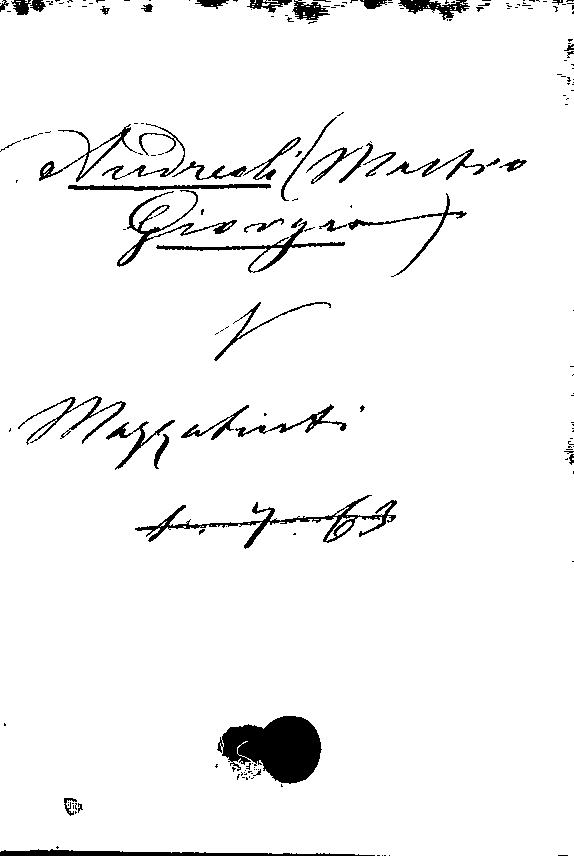 Andreoli (Mastro
Giorgio)
V
Mazzatinti
1. 7. 63